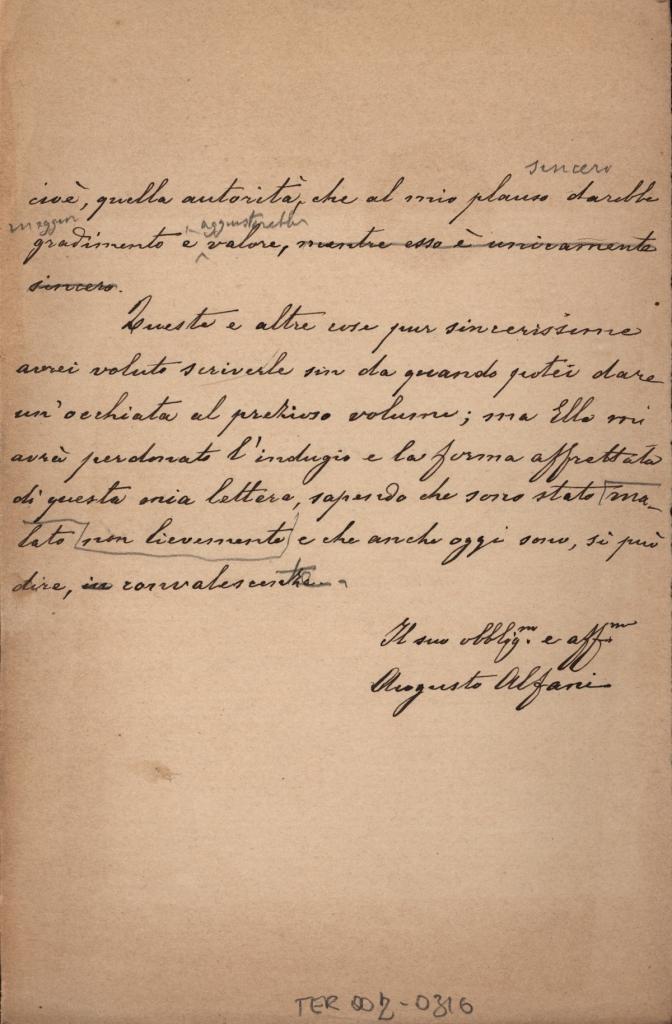 sincero
cioè, quella autorità, che al mio plauso darebbe
maggior aggiusterebbe
gradimento e valore, mentre esso è unicamente
sincero.
Queste e altre cose pur sincerissime
avrei voluto scriverle sin da quando potei dare
un'occhiata al prezioso volume; ma Ella mi
avrà perdonato l'indugio e la forma affrettata
di questa mia lettera, sapendo che sono stato ma-
lato non lievemente e che anche oggi sono, si può
dire, in convalescente
Il suo obblig.mo e aff.mo
Augusto Alfani
TER 002-0316